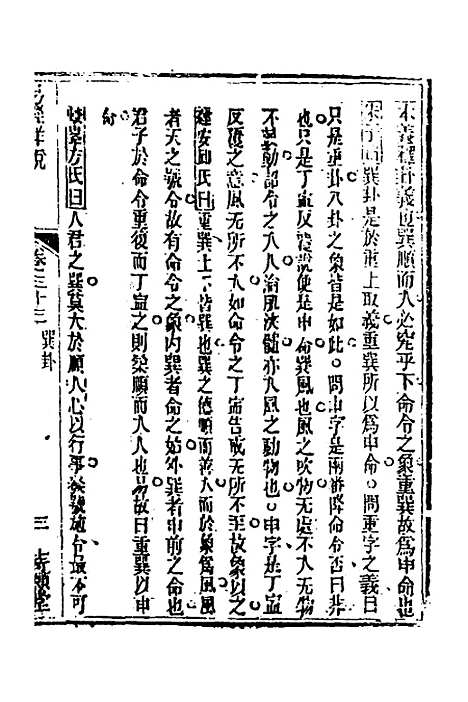 本義釋卦義也巽順而入必究乎下命令之象重巽故為申命也
朱子曰巽卦是於重上取義重巽所以為申命○問重字之義曰
只是重卦八卦之象皆是如此○問申字是兩番降命令否曰非
也只是丁寧反覆說便是申命巽風也風之吹物無處不入無物
不鼓動詔令之入人淪肌浹髓亦如風之動物也○申字是丁寧
反覆之意風无所不入如命令之丁寧告戒无所不至故象之○
建安邱氏曰重巽上下皆巽也巽之德順而善入而於象為風風
者天之號令故有命令之象內巽者命之始外巽者申前之命也
君子於命令重復而丁寧之則柔順而入人也易故曰重巽以申
命
蛟峯方氏曰人君之巽莫大於順人心以行事發號施令最不可
易經詳說
卷三十三 巽卦
三